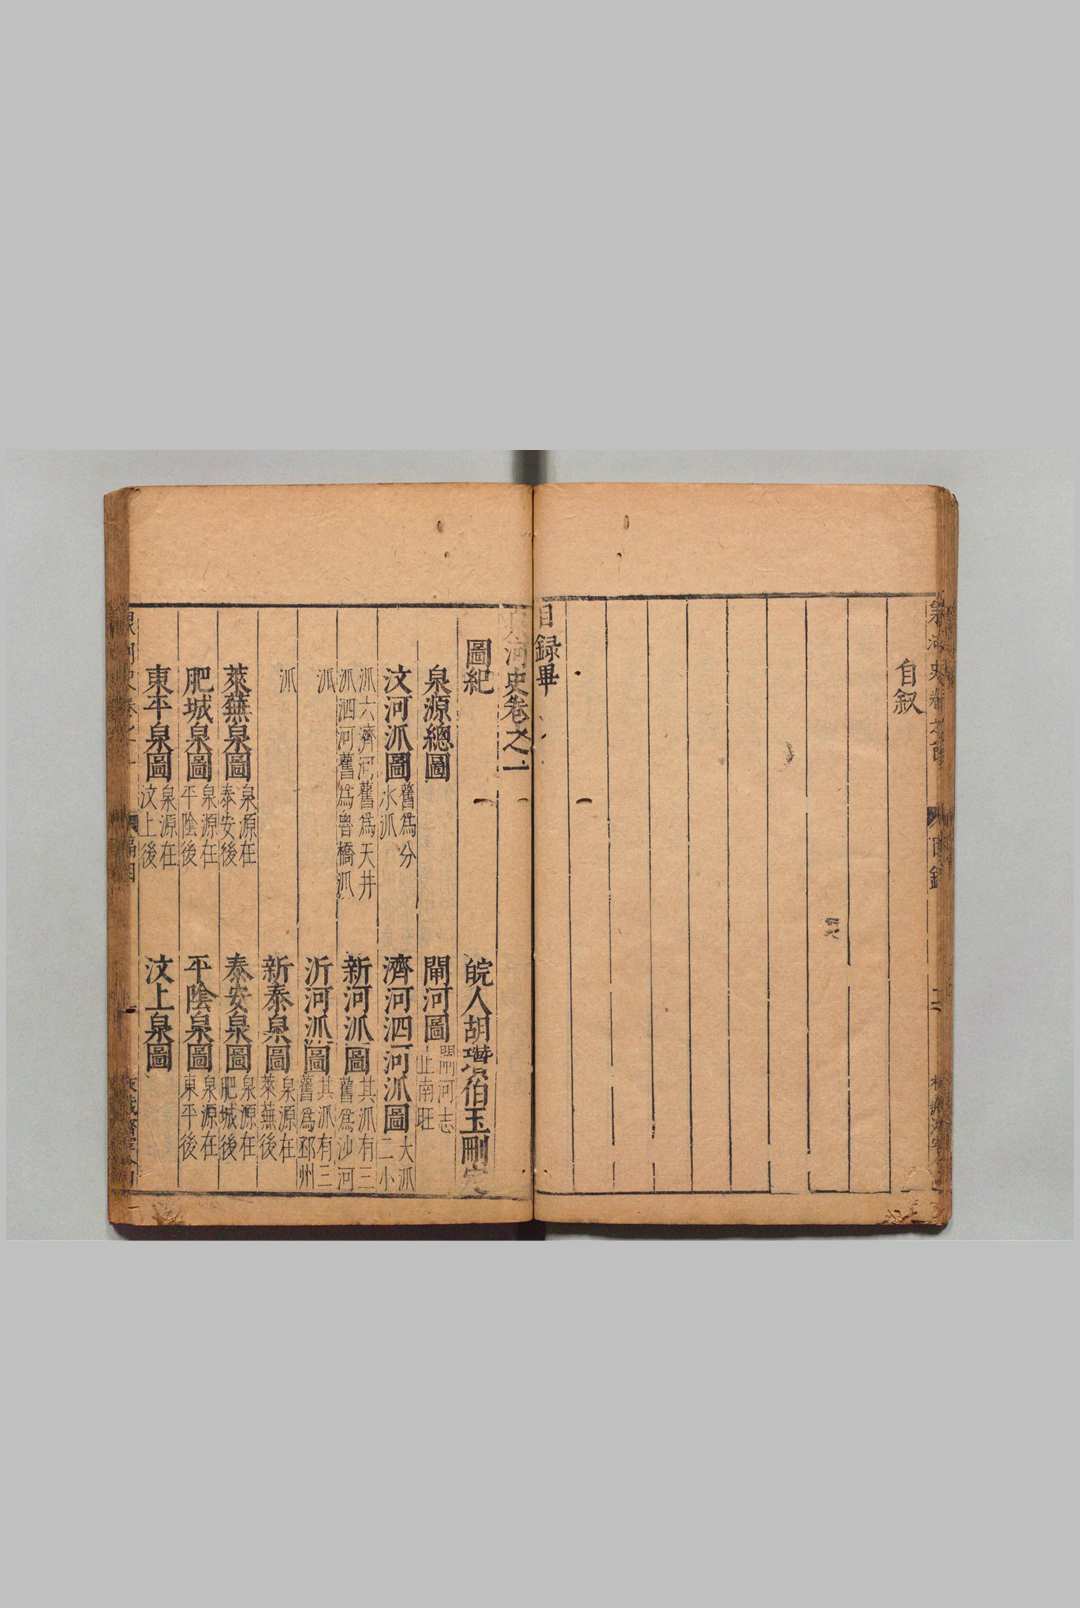 泉河史卷之首
自叙
目錄畢
河史卷之一
圖紀 皖人胡瓚伯玉刪定
泉源總圖 閘河圖 閘河志止南旺
汶河派圖 舊為分水派 濟河泗河派圖 大派二小
派六濟河舊為天井派泗河舊為魯橋派 新河派圖 其派有三舊為沙河
派 沂河派圖 其派有三舊為邳州
派 新泰泉圖 泉源在萊蕪後
萊蕪泉圖 泉源在泰安後 泰安泉圖 泉源在肥城後
肥城泉圖 泉源在平陰後 平陰泉圖 泉源在東平後
東平泉圖 泉源在汶上後 汶上泉圖